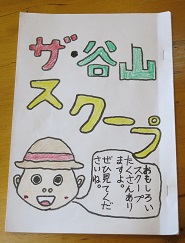 ザ・谷山
スクープ
おもしろい
スクープ
たくさんあり
ますよ。
ぜひ見てくだ
さいね。